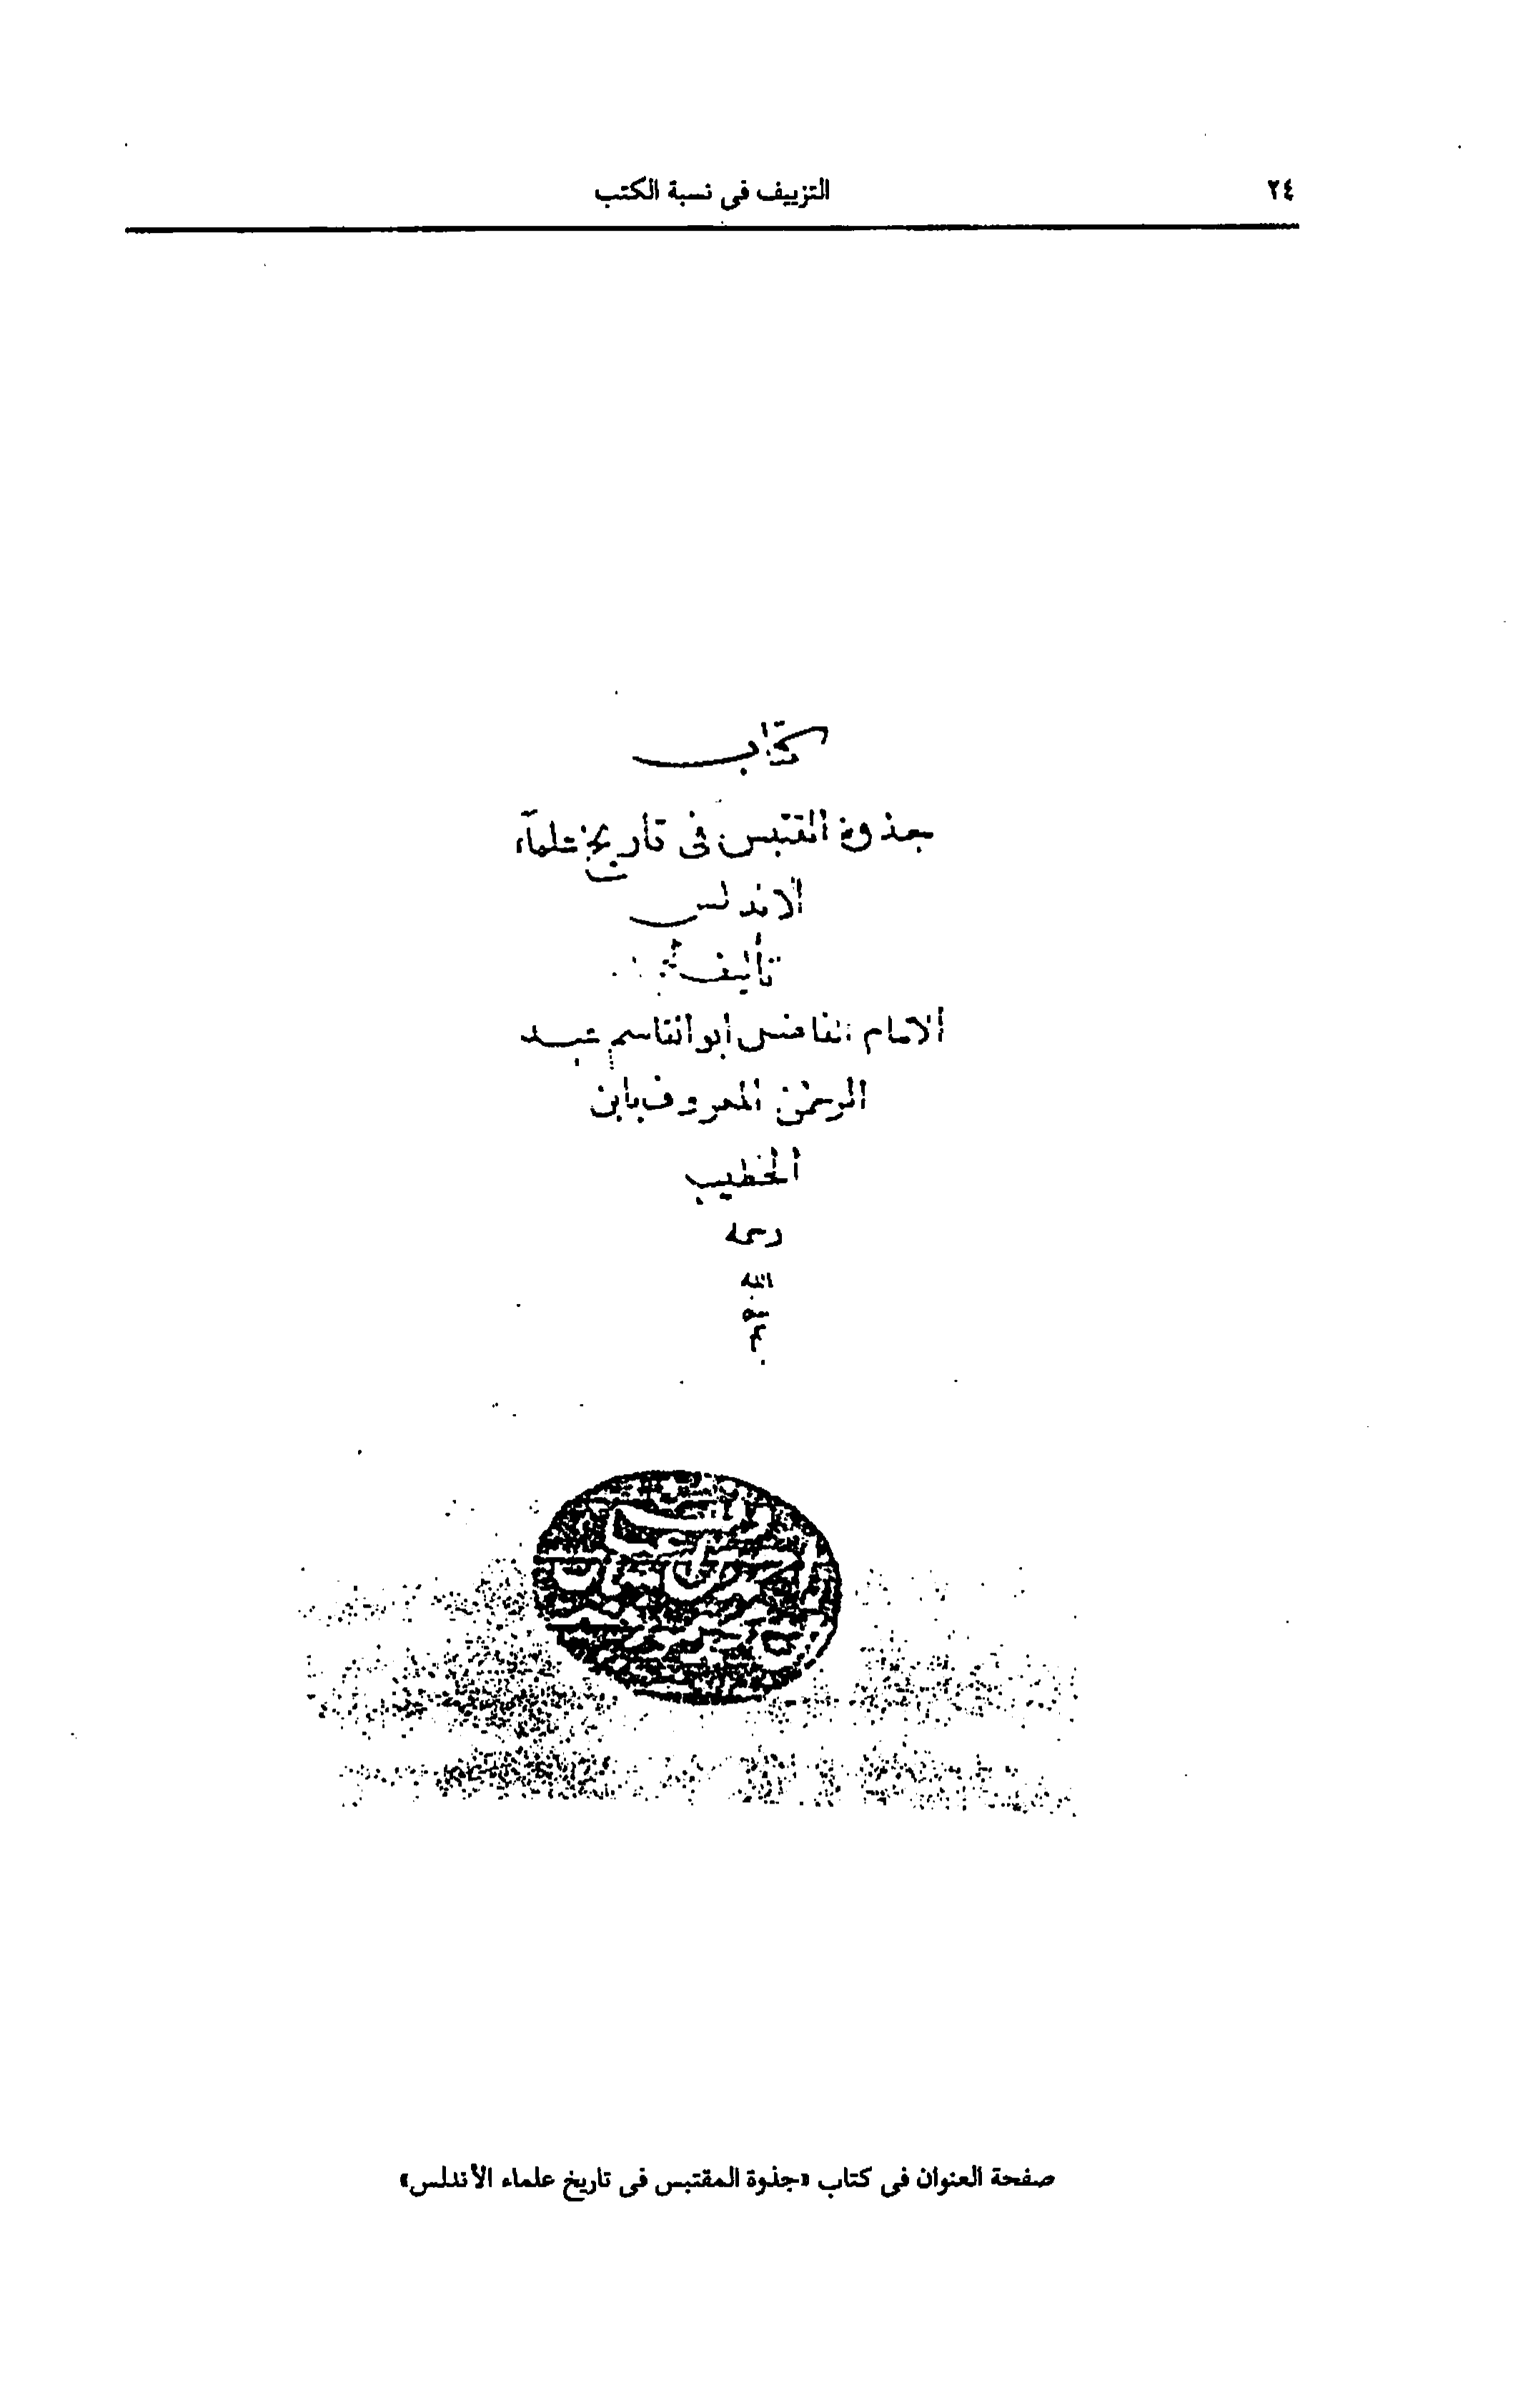 ٢٤
التزييف فى نسبة الكتب
كتاب
جذوة المقتبس فى تاريخ علماء
الاندلس
تأليف
الامام القاضى ابو القاسم عبد
الرحمن المعروف بابن
الخطيب
رحمه
الله
صفحة العنوان فى كتاب «جذوة المقتبس فى تاريخ علماء الأندلس»